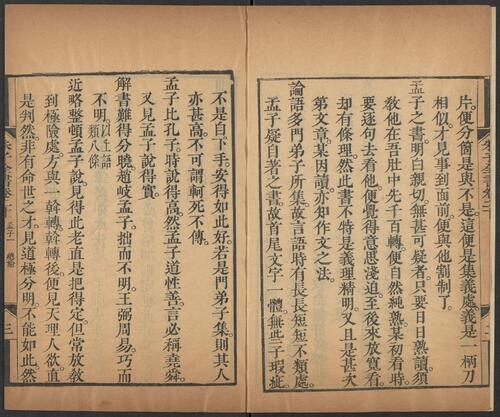 片便分箇是與不是這便是集義處義是一柄刀
相似才見事到面前便與他割制了
孟子之書明白親切無甚可疑者只要日日熟讀須
敎他在吾肚中先千百轉便自然純熟某初看時
要逐句去看他便覺得意思淺迫至後來放寬看
却有條理然此書不特是義理精明又且是甚次
第文章某因讀亦知作文之法
論語多門弟子所集故言語時有長長短短不類處
孟子疑自著之書故首尾文字一體無些子瑕疵
不是自下手安得如此好若是門弟子集則其人
亦甚高不可謂軻死不傳
孟子比孔子時說得高然孟子道性善言必稱堯舜
又見孟子說得實
解書難得分曉趙岐孟子拙而不明王弼周易巧而
不明以上語類八條
近略整頓孟子說見得此老直是把得定但常放敎
到極險處方與一斡轉斡轉後便見天理人欲直
是判然非有命世之才見道極分明不能如此然